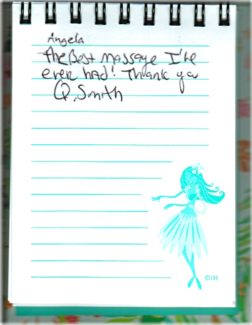 Angela
The Best massage I've
ever had! Thank you
Q. Smith
©LHI